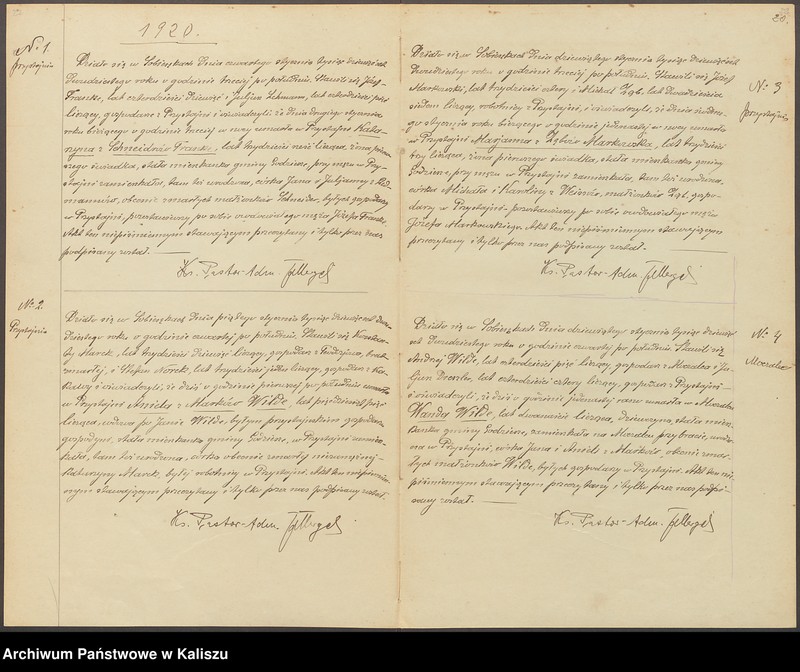 1920.
20.
№ 1
Przystajnia
Działo się w Sobiesękach dnia czwartego stycznia tysiąc dziewięćset
dwudziestego roku o godzinie trzeciej po południu. Stawili się Józef
Franke, lat czterdzieści dziewięć i Juljan Lehmann, lat czterdzieści
liczący, gospodarze z Przystajni i oświadczyli, że dnia drugiego stycznia
roku bieżącego o godzinie trzeciej w nocy umarła w Przystajni Kata-
rzyna z Schneidrów Franke, lat trzydzieści liczącą, żona pierw-
szego świadka, stała mieszkanka gminy Godziesze, przy mężu w Przy-
stajni zamieszkała, tam też urodzona, córka Jana i Juljanny z
obecnie zmarłych małżonków Schneider, byłych gospodarzy
w Przystajni, pozostawiwszy po sobie owdowiałego męża Józefa Franke.
Akt ten niepiśmiennym stawającym przeczytany i tylko przez nas
podpisany został.
Ks. Pastor-Adm. Fellegel
№ 2.
Przystajnia
Działo się w Sobiesękach dnia piątego stycznia tysiąc dziewięćset dwu-
dziestego roku o godzinie czwartej po południu. Stawili się
Marek, lat trzydzieści dziewięć liczący, gospodarz z brat
zmarłej, i Stefan lat trzydzieści jeden liczący, gospodarz z
i oświadczyli, że dziś o godzinie pierwszej po południu umarła
w Przystajni Aniela z Marków Wilde, lat pięćdziesiąt pięć
licząca, wdowa po Janie Wilde, byłym przystajnskim gospodarzu,
gospodyni, stała mieszkanka gminy Godziesze, w Przystajni zamiesz-
kała, tam też urodzona, córka obecnie zmarłej niezamężnej
Katarzyny Marek, byłej robotnicy w Przystajni. Akt ten niepiśmien-
nym stawającym przeczytany i tylko przez nas podpisany został.
Ks. Pastor-Adm. Fellegel
№ 3
Przystajnia
Działo się w Sobiesękach dnia dziewiątego stycznia tysiąc dziewięćset
dwudziestego roku o godzinie trzeciej po południu. Stawili się Józef
Markowski, lat trzydzieści cztery i Michał Ząb, lat dwadzieścia
siedem liczący, robotnicy z Przystajni, i oświadczyli, że dnia siódme-
go stycznia roku bieżącego o godzinie jedenastej w nocy umarła
w Przystajni Marjanna z Zębów Markowska, lat trzydzieści
trzy licząca, żona pierwszego świadka, stała mieszkanka gminy
Godziesze, przy mężu w Przystajni zamieszkała, tam też urodzona,
córka Michała i Karoliny z małżonków Ząb, gospo-
darzy w Przystajni pozostawiwszy po sobie owdowiałego męża
Józefa Markowskiego. Akt ten niepiśmiennym stawającym
przeczytany i tylko przez nas podpisany został.
Ks. Pastor-Adm. Fellegel
№ 4
Moczalec
Działo się w Sobiesękach dnia dziewiątego stycznia tysiąc dziewięć-
set dwudziestego roku o godzinie czwartej po południu. Stawili się
Andrzej Wilde, lat czterdzieści pięć liczący, gospodarz z Moczalca i Ju-
ljan lat czterdzieści cztery liczący, gospodarz z Przystajni
i oświadczyli, że dziś o godzinie jedenastej rano umarła w Moczalcu
Wanda Wilde, lat dwanaście licząca, dziewczyna, stała miesz-
kanka gminy Godziesze, zamieszkała na Moczalcu przy bracie, urodzo-
na w Przystajni, córka Jana i Anieli z Marków, obecnie zmar-
łych małżonków Wilde, byłych gospodarzy w Przystajni. Akt ten nie-
piśmiennym stawającym przeczytany i tylko przez nas podpi-
sany został.
Ks. Pastor-Adm. Fellegel
Archiwum Państwowe w Kaliszu